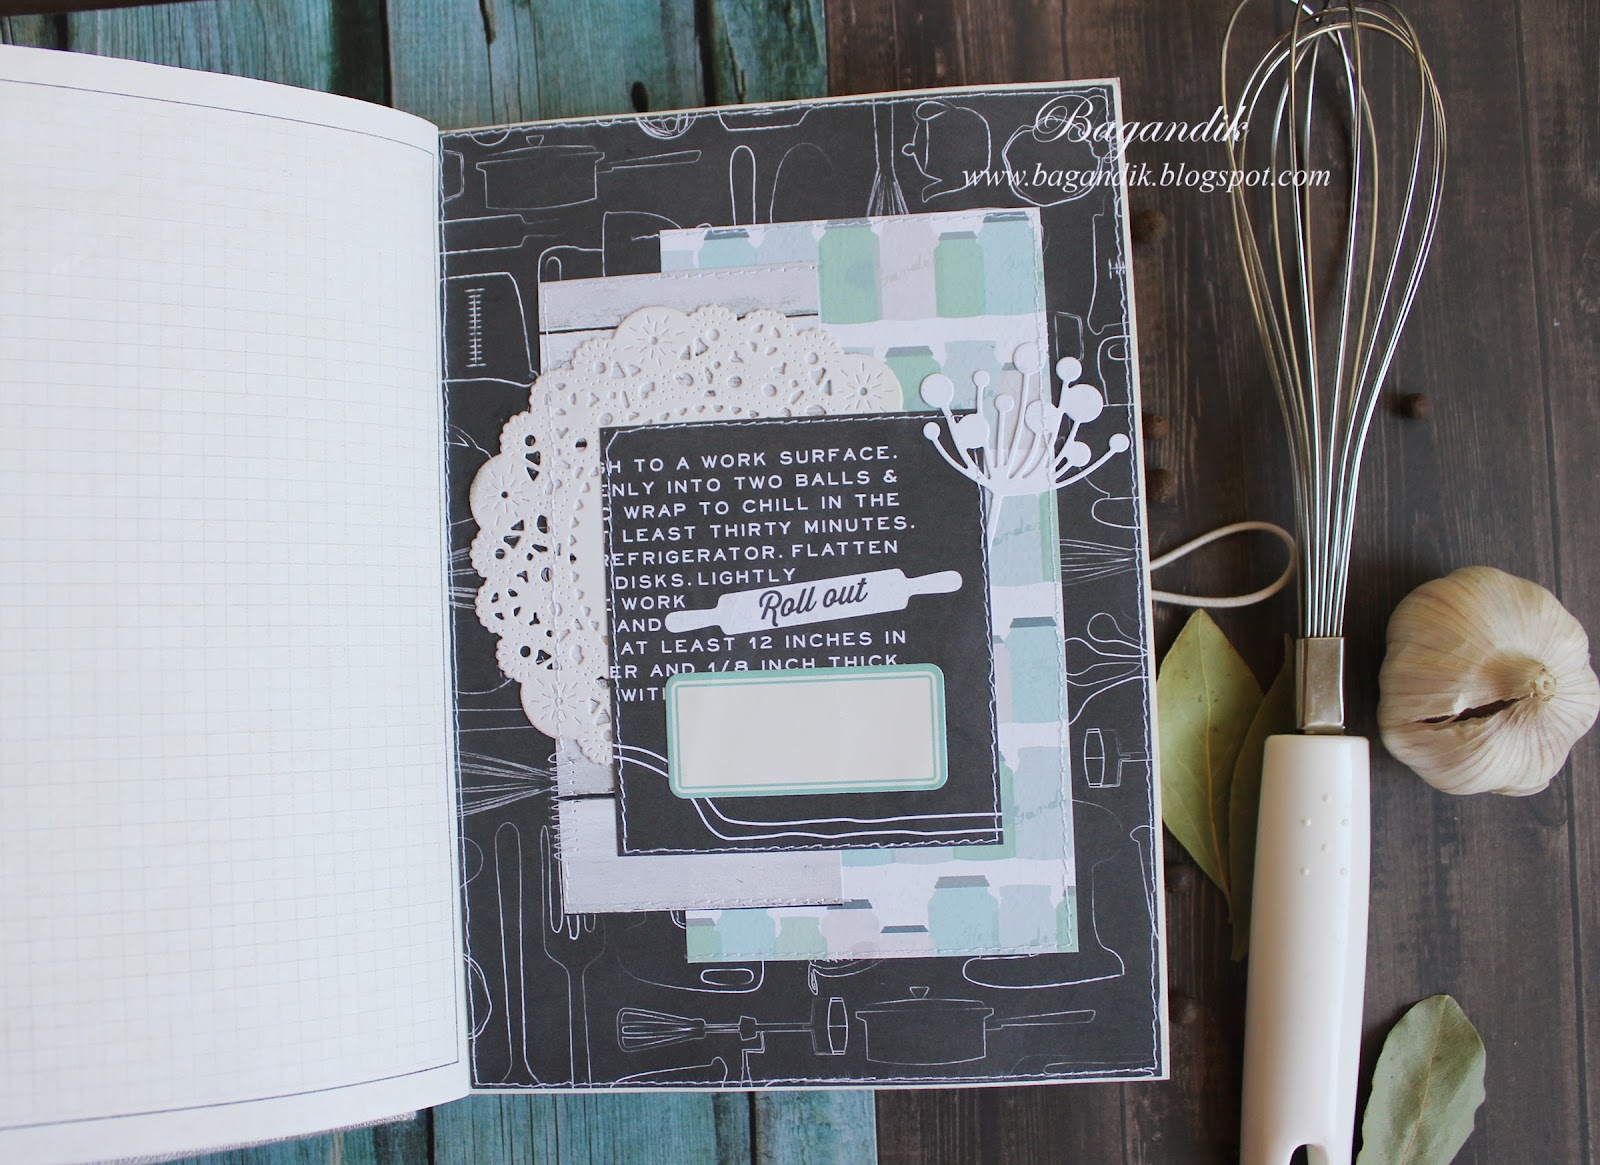 Bagandik
www.bagandik.blogspot.com
GH TO A WORK SURFACE.
ENLY INTO TWO BALLS &
WRAP TO CHILL IN THE
LEAST THIRTY MINUTES.
REFRIGERATOR. FLATTEN
DISKS. LIGHTLY
WORK
AND
Roll out
AT LEAST 12 INCHES IN
ER AND 1/8 INCH THICK.
WITH